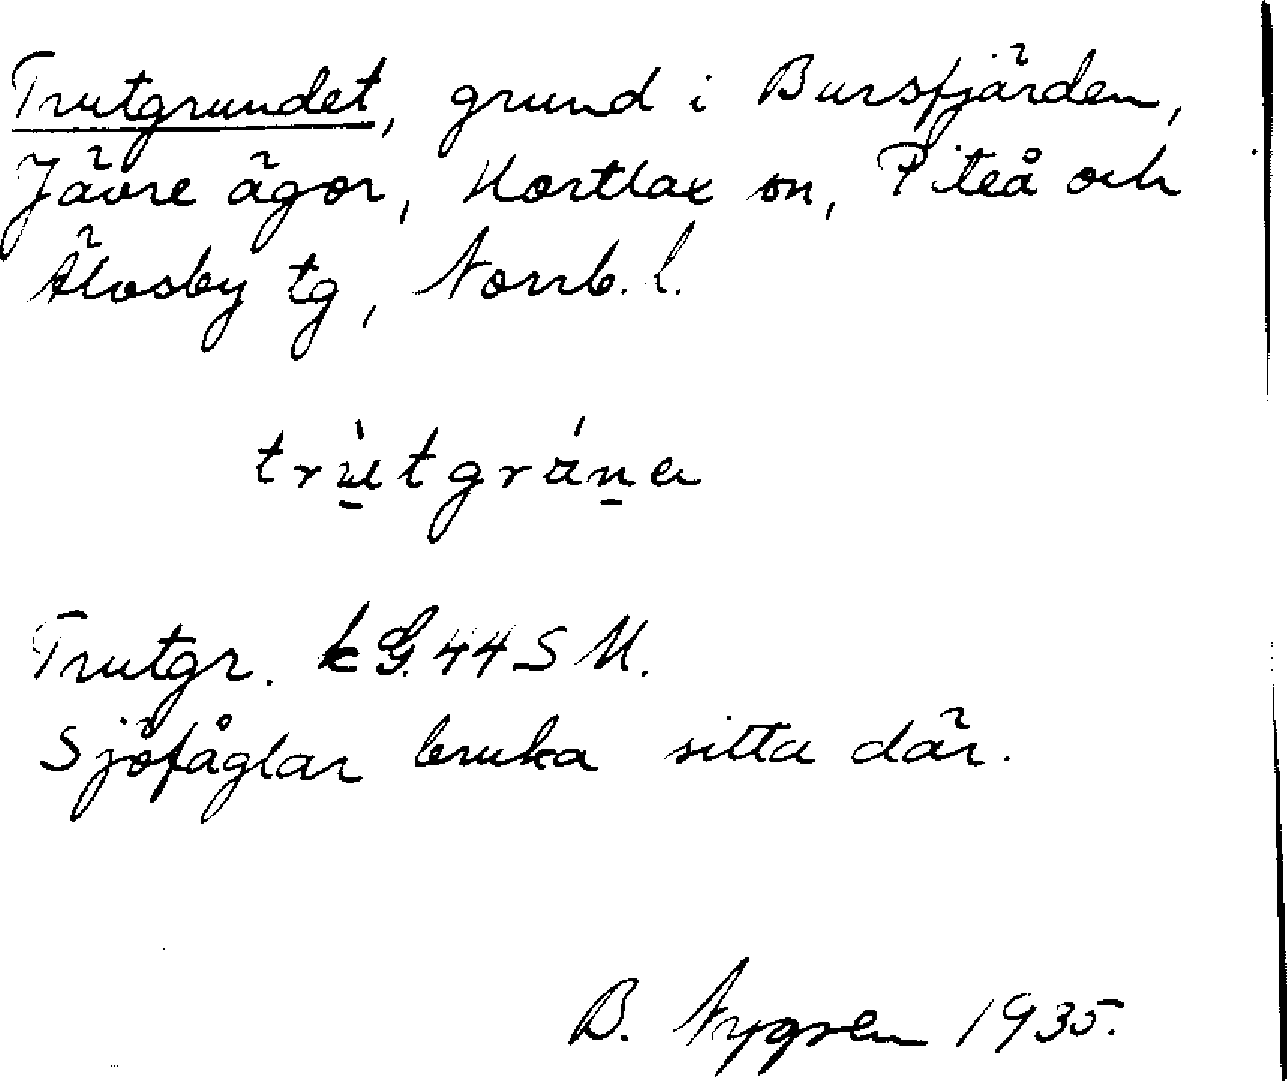 Trutgrundet, grund i Bursfjärden,
Jävre ägor, Hortlax sn, Piteå och
Älvsby tg, Norrb. l.
Trutgr. kG. 44 S M.
Sjöfåglar bruka sitta där.
B. Nygren 1935.